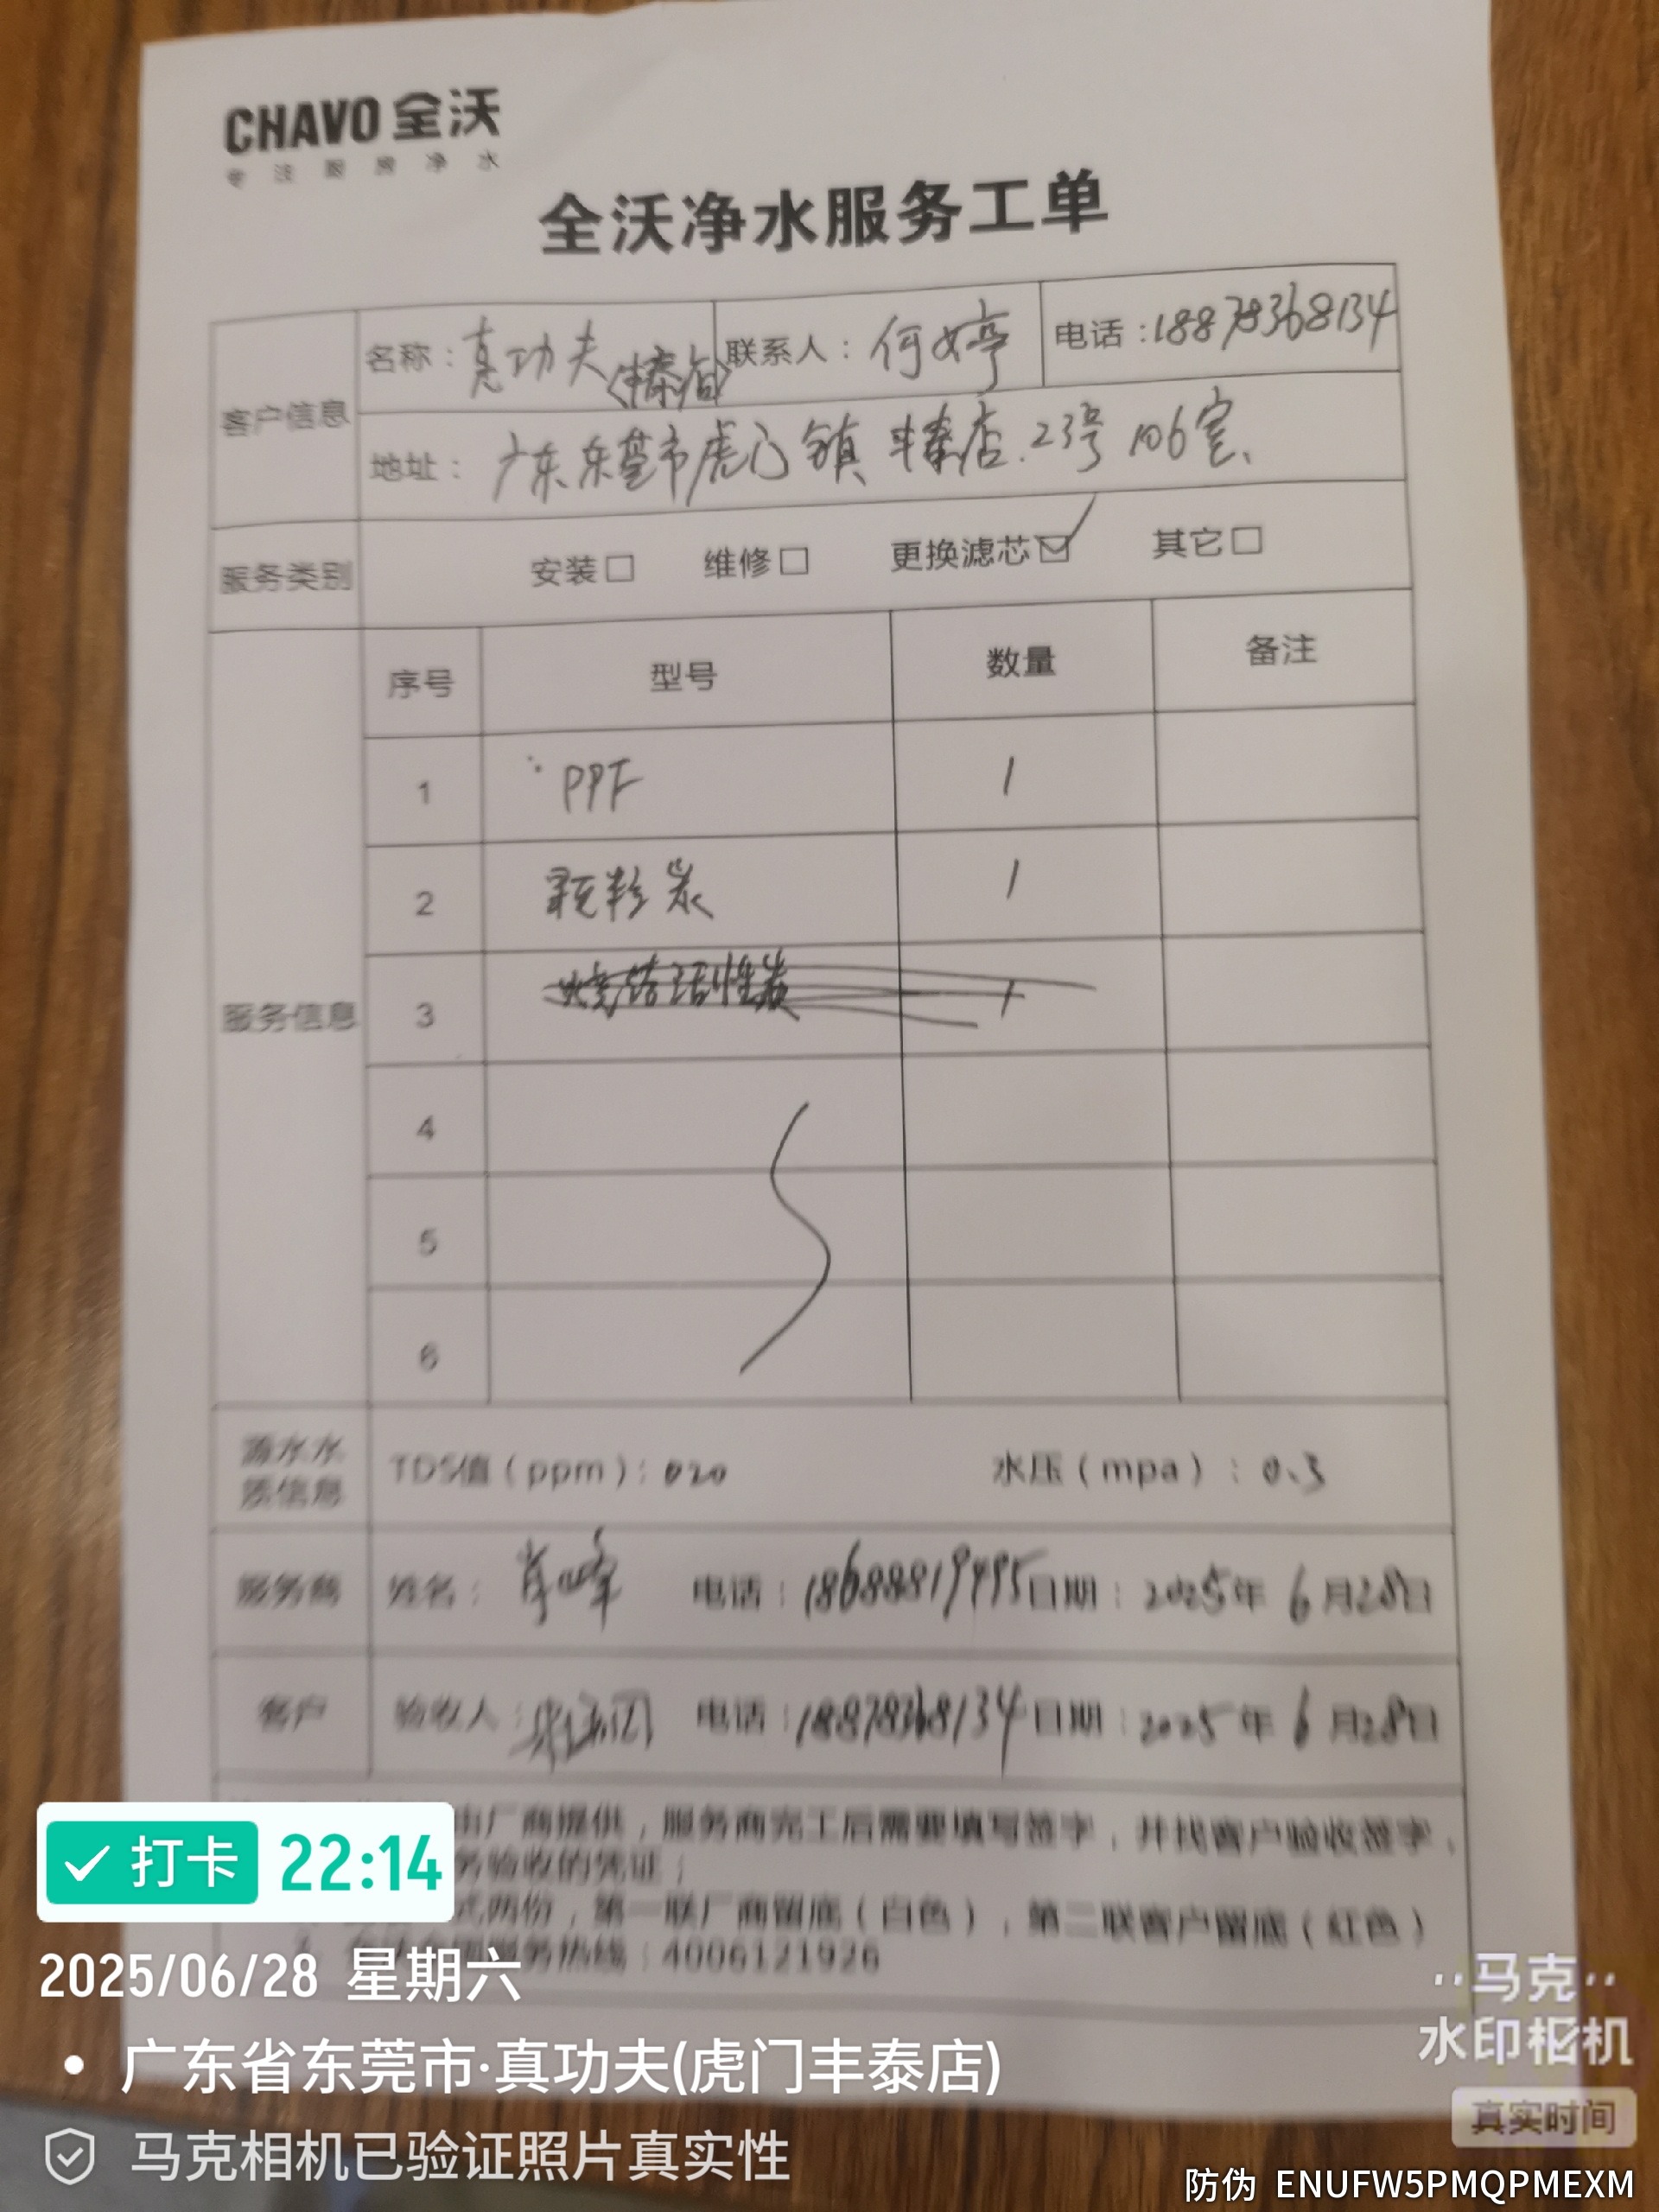 CHAVO 全沃
专注厨房净水
全沃净水服务工单
客户信息 名称：真功夫（丰泰店） 联系人：何婷 电话：18878368134
地址：广东东莞市虎门镇丰泰店.23号106室、
服务类别 安装□ 维修□ 更换滤芯☑ 其它□
服务信息 序号 型号 数量 备注
1 PPF 1
2 颗粒炭 1
3 烧结活性炭 1
4
5
6
源水水质信息 TDS值（ppm）：020 水压（mpa）：0.3
服务商 姓名：肖峰 电话：18688819495 日期：2025年6月28日
客户 验收人： 电话：18878368134 日期：2025年6月28日
由厂商提供，服务商完工后需要填写签字，并找客户验收签字，
务验收的凭证；
式两份，第一联厂商留底（白色），第二联客户留底（红色）
服务热线：4006121926
打卡 22:14
2025/06/28 星期六
广东省东莞市·真功夫(虎门丰泰店)
马克相机已验证照片真实性
马克
水印相机
真实时间
防伪 ENUFW5PMQPMEXM